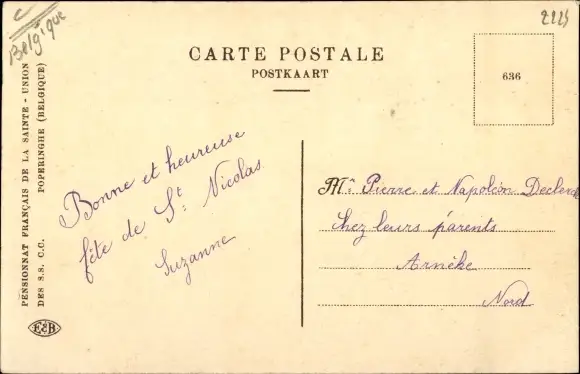 Belgique
2225
CARTE POSTALE
POSTKAART
636
PENSIONNAT FRANÇAIS DE LA SAINTE - UNION
DES S.S. C.C. POPERINGHE (BELGIQUE)
Bonne et heureuse
fête de St: Nicolas
Suzanne
Mrs Pierre et Napoléon Declerck
chez leurs parents
Arnèke
Nord
E&B.